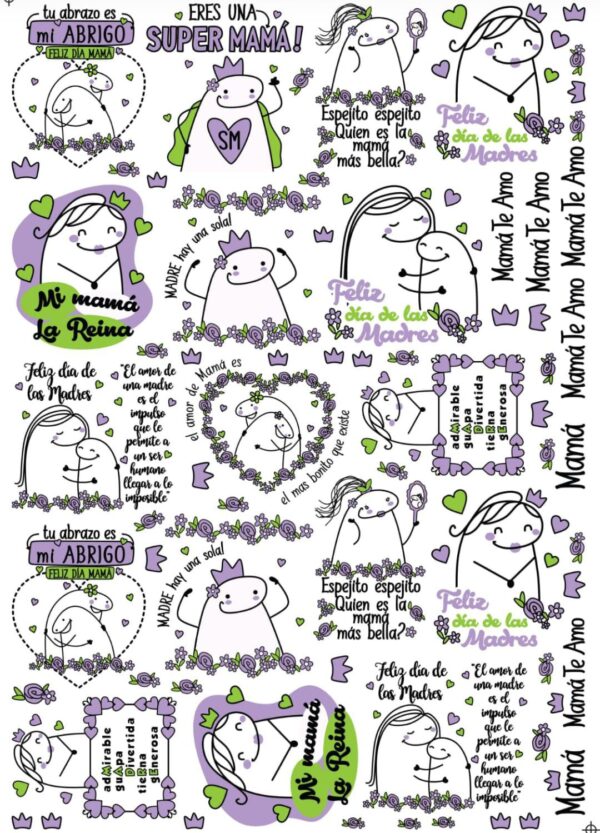 tu abrazo es
mi ABRIGO
FELIZ DÍA MAMÁ
ERES UNA
SUPER MAMÁ!
SM
Espejito espejito
Quien es la
mamá
más bella?
Feliz
día de las
Madres
Mi mamá
La Reina
MADRE hay una sola!
Feliz
día de las
Madres
Mamá Te Amo
Mamá Te Amo
Mamá Te Amo
Feliz dia de
las Madres
"El amor de
una madre
es el
impulso
que le
permite a
un ser
humano
llegar a lo
imposible"
el amor de Mamá es
el mas bonito que existe
adMirable
guApa
Divertida
tieRna
gEnerosa
Mamá Te Amo
Mamá
tu abrazo es
mi ABRIGO
FELIZ DÍA MAMÁ
MADRE hay una sola!
Espejito espejito
Quien es la
mamá
más bella?
Feliz
día de las
Madres
adMirable
guApa
Divertida
tieRna
gEnerosa
Mi mamá
La Reina
Feliz dia de
las Madres
"El amor de
una madre
es el
impulso
que le
permite a
un ser
humano
llegar a lo
imposible"
Mamá Te Amo
Mamá